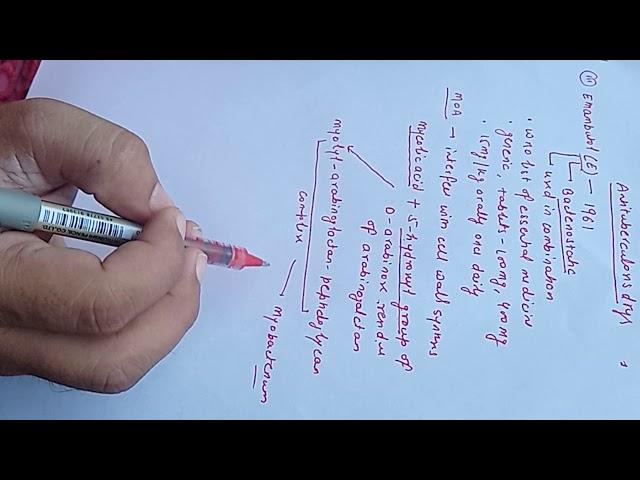 Antituberculous drugs
(iii) Emambutol (E) - 1961
Bacteriostatic
used in combination
• WHO list of essential medicine
• generic, tablets - 100mg, 400mg
• 15mg/kg orally once daily
MOA → interfer with cell wall synthesis
mycolic acid + 5-hydroxyl group of
D-arabinose residue
of arabinogalactan
mycolyl-arabinogalactan-peptidoglycan
complex
→ Mycobacterium